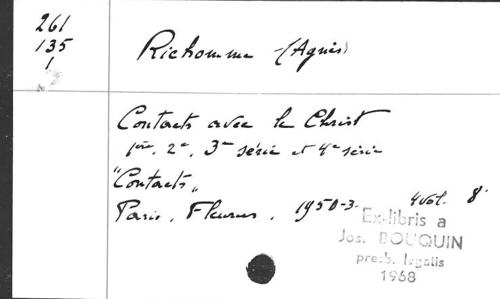 261
135
1
Richomme (Agnès)
Contacts avec le Christ
1ère, 2e, 3me série et 4e série
"Contacts"
Paris, Fleurus, 1950-3. 4 vol. 8°
Ex-libris a
Jos. BOUQUIN
presb. legalis
1968